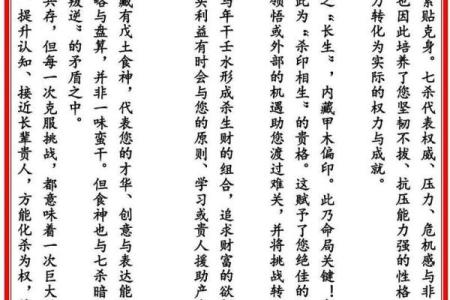 紧贴克身。七杀代表权威、压力、危机感与非
也因此培养了您坚韧不拔、抗压能力强的性格
力转化为实际的权力与成就。
之“长生”，内藏甲木偏印。此乃命局关键！
此为“杀印相生”的贵格。这赋予了您绝佳的
领悟或外部的机遇助您渡过难关，并将挑战转
与年干壬水形成杀生财的组合，追求财富的欲
实利益有时会与您的原则、学习或贵人援助产
藏有戊土食神，代表您的才华、创意与表达能
略与盘算，并非一味蛮干。但食神也与七杀暗
叛逆”的矛盾之中。
共存，但每一次克服挑战，都意味着一次巨大
提升认知、接近长辈贵人，方能化杀为权，